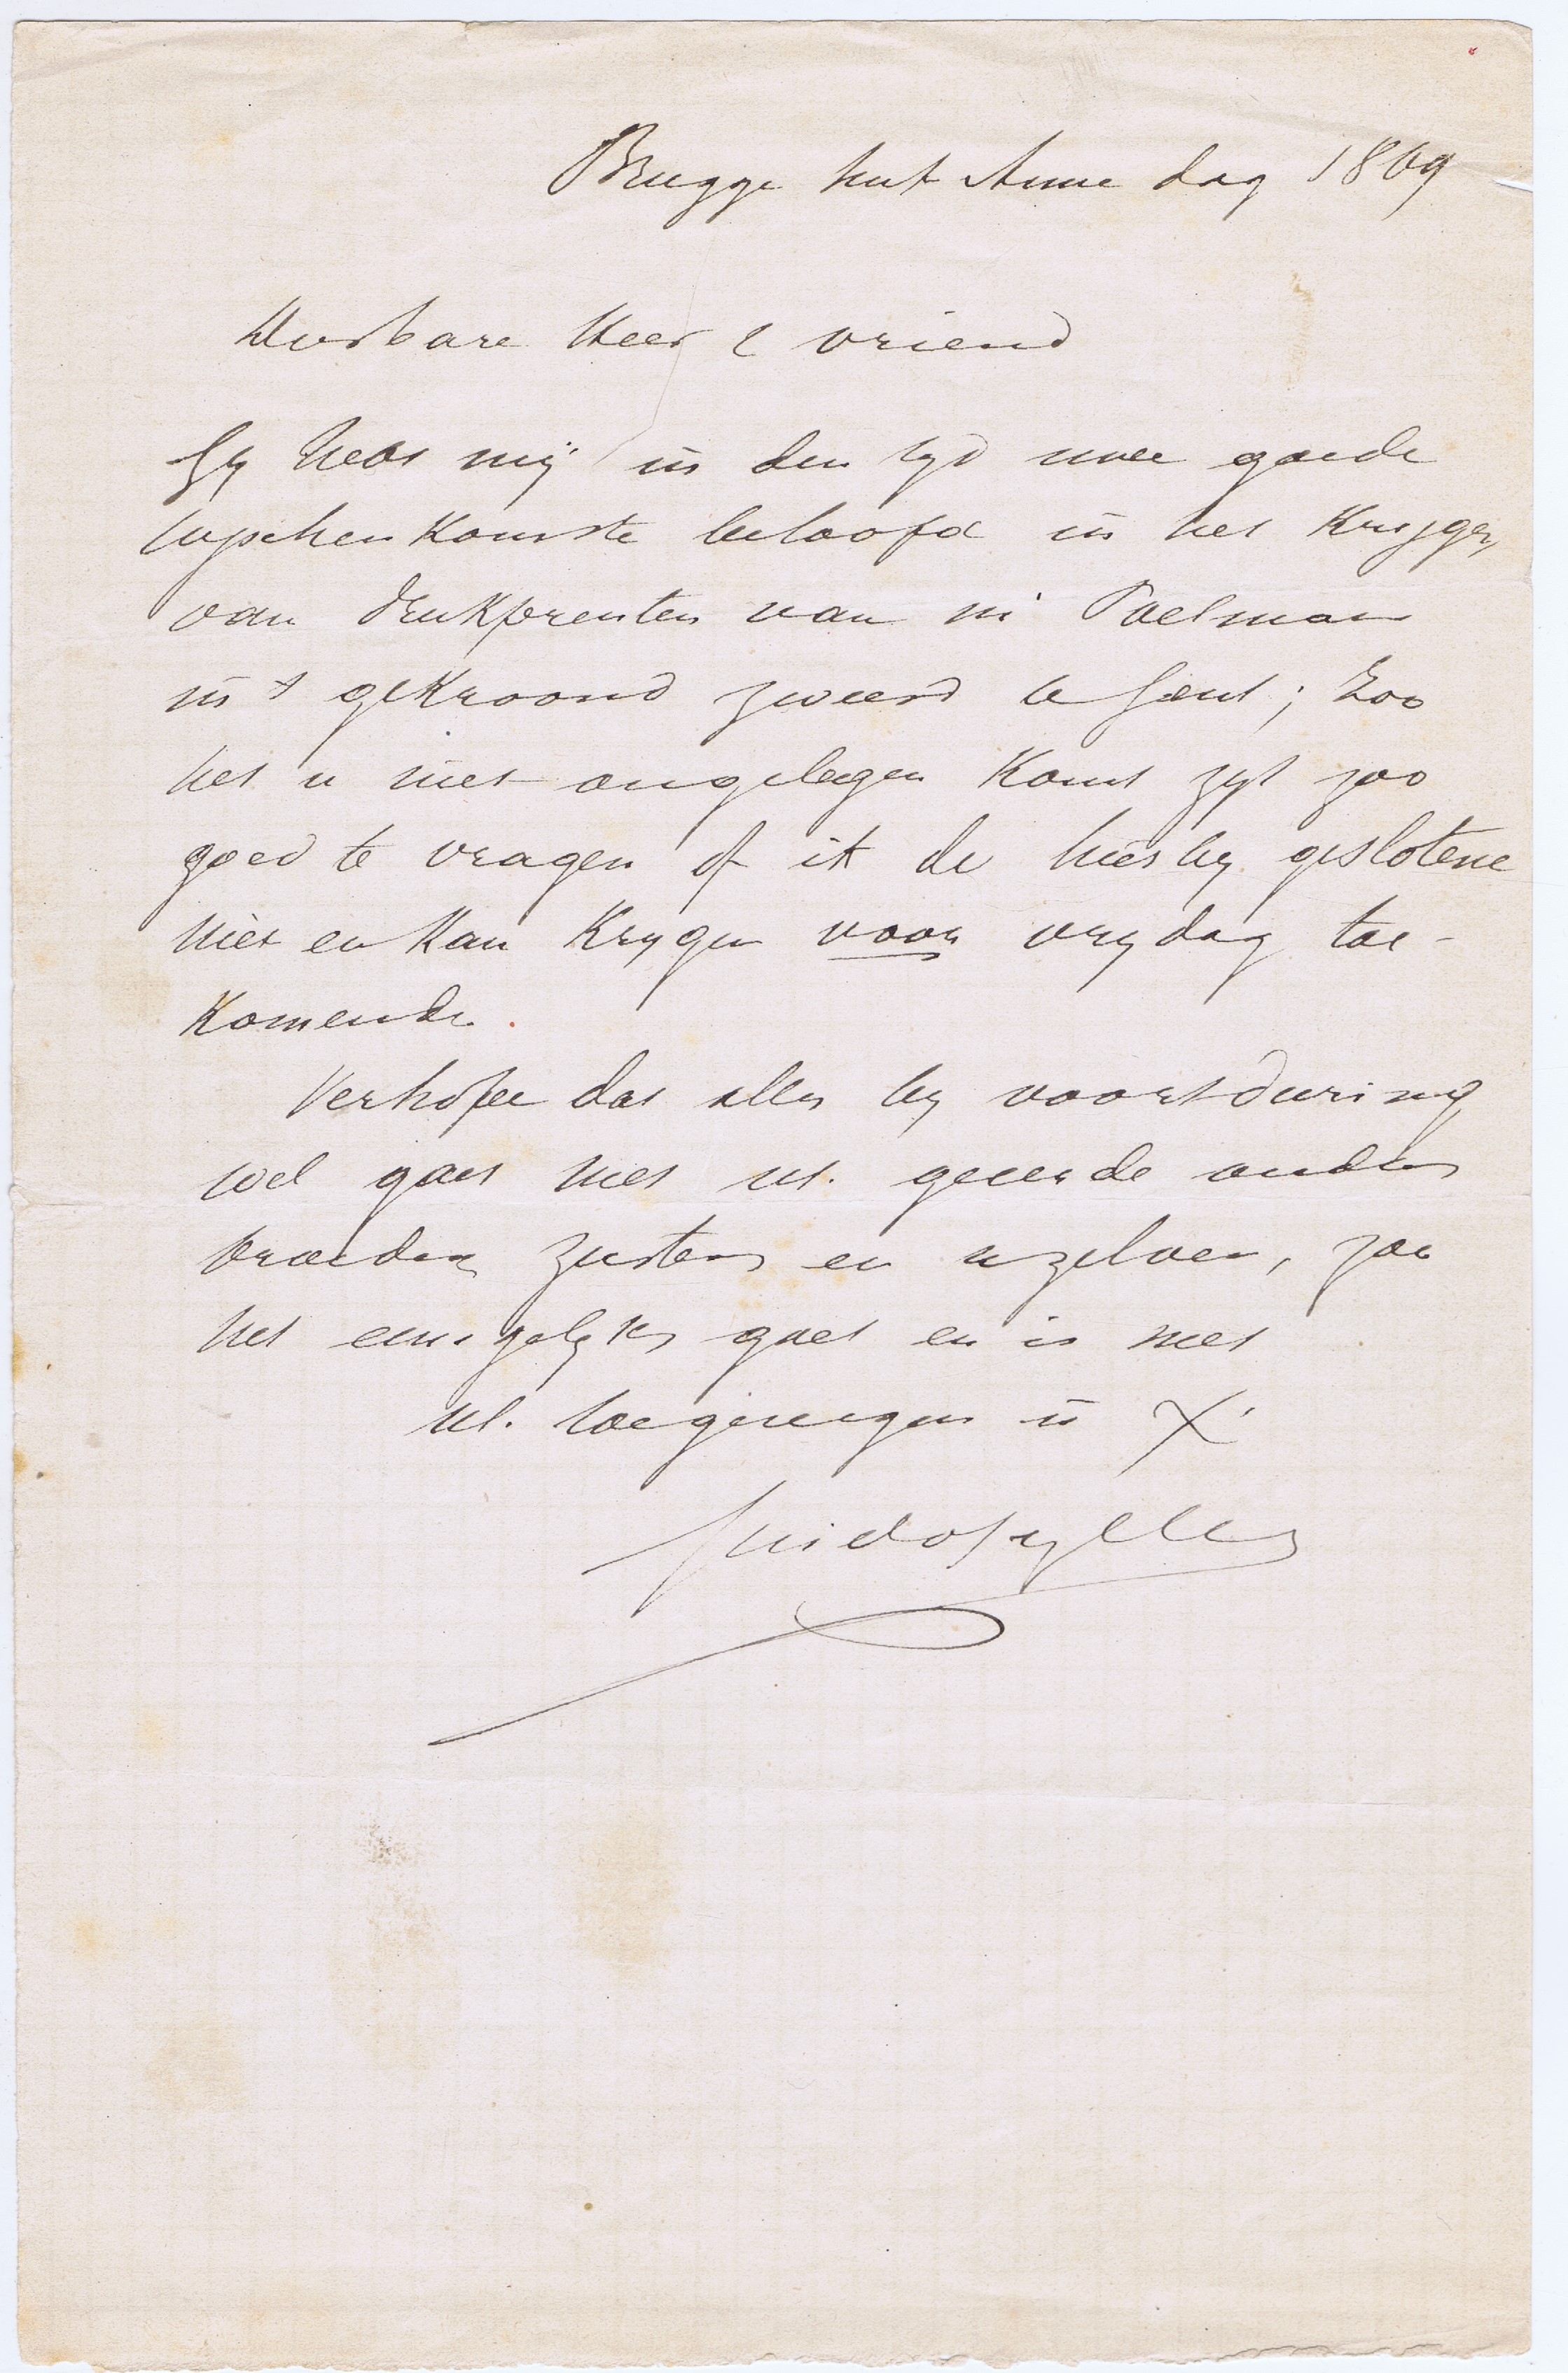 Brugge sint Anne dag 1869
Dierbare Heer & vriend
Gy hebt mij in den tyd uwe goede
tusschenkomste beloofd in het krijgen
van drukprenten van Mr Poelman
in 't gekroond zweerd te Gent; Zoo
het u niet ongelegen komt zyt zoo
goed te vragen of ik de hierby geslotene
niet en kan krygen voor vrydag toe-
komende.
Verhope dat alles by voortduring
wel gaet met Ul. geeerde ouders
broeders zusters en uzelven, zoo
het eensgelyks gaet en is met
Ul. toegenegen in X'
Guido Gezelle